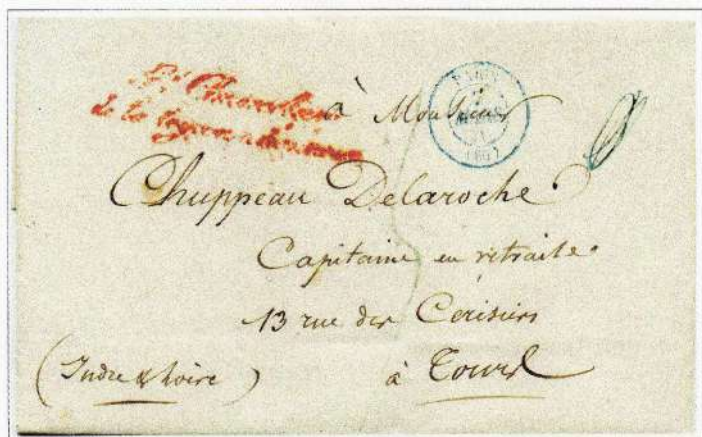 Gd Chancelier
de la légion d'honneur
PARIS
(60)
à Monsieur
Chuppeau Delaroche
Capitaine en retraite
13 rue des Cerisiers
(Indre & Loire) à Tours